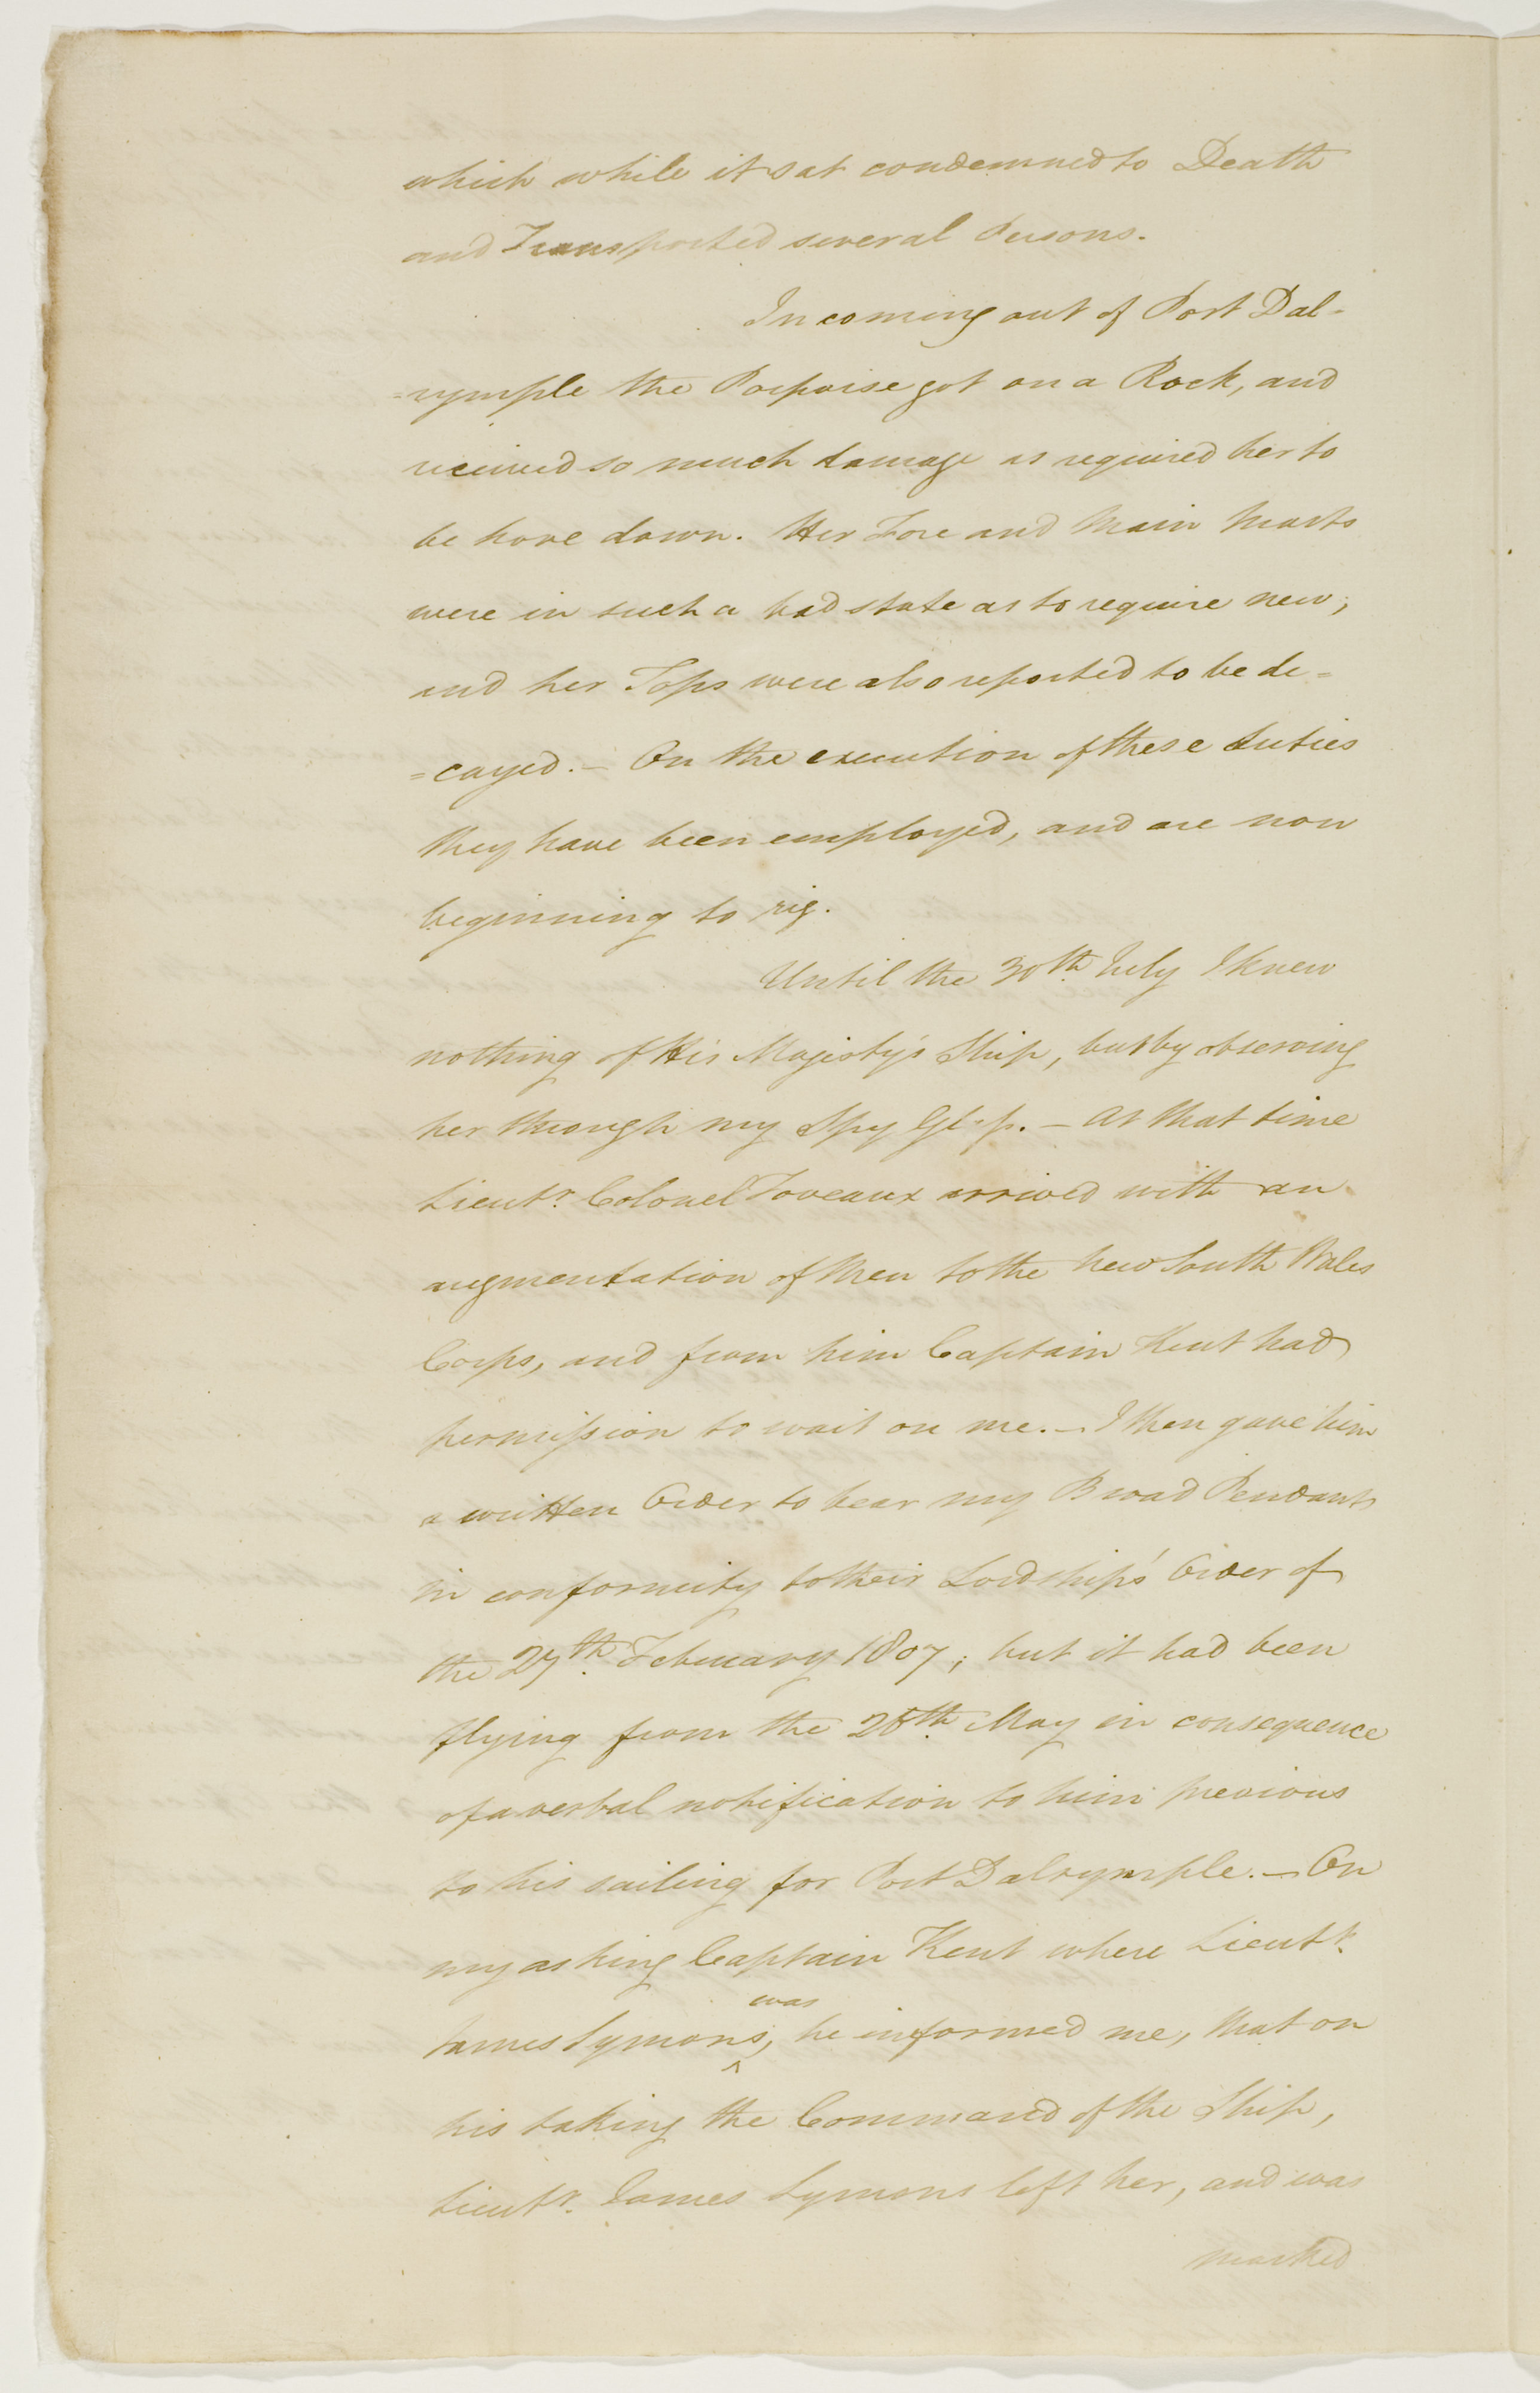 which while it sat condemned to Death
and Transported several Persons.
In coming out of Port Dal=
=rymple the Porpoise got on a Rock, and
received so much damage as required her to
be hove down. Her Fore and Main Masts
were in such a bad state as to require new;
and her Tops were also reported to be de=
=cayed. – On the execution of these duties
they have been employed, and are now
beginning to rig.
Until the 30th. July I knew
nothing of His Majesty's Ship, but by observing
her through my Spy Glass. – At that time
Lieutt. Colonel Foveaux arrived with an
augmentation of Men to the New South Wales
Corps, and from him Captain Kent had
permission to wait on me. – I then gave him
a written Order to bear my Broad Pendant
in conformity to their Lordships' Order of
the 27th. February 1807; but it had been
flying from the 28th. May in consequence
of a verbal notification to him previous
to his sailing for Port Dalrymple. – On
my asking Captain Kent where Lieutt.
was
James Symons, he informed me, that on
his taking the Command of the Ship,
Lieutt. James Symons left her, and was
marked